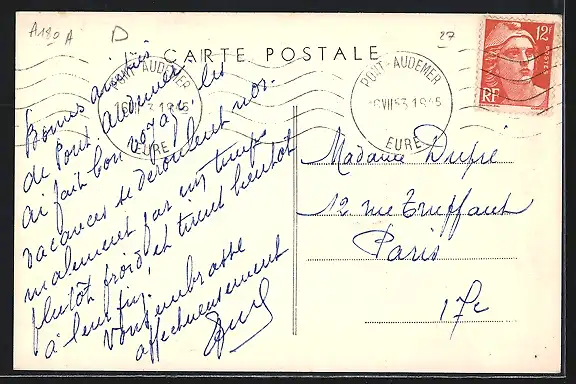 A180 A
D
27
CARTE POSTALE
12F
RF
PONT-AUDEMER
16 VII 53 1945
EURE
PONT-AUDEMER
VII 53 1945
EURE
Bonnes amitiés
de Pont Audemer
ai fait bon voyage, les
vacances se déroulent nor-
malement par un temps
plutôt froid, et tirent bientôt
à leur fin.
Vous embrasse
affectueusement
Madame Dupré
12 rue Truffaut
Paris
17e